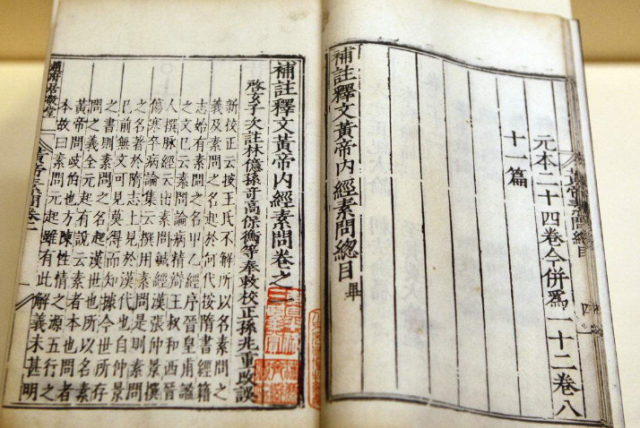 元本二十四卷今併爲一十二卷八
十一篇
補註釋文黃帝內經素問總目畢
補註釋文黃帝內經素問卷之
啓玄子次註林億孫奇高保衡等奉敕校正孫兆重改誤
新校正云按王氏不解所以名素問之
義及素問之名起於何代按隋書經籍
志始有素問之名甲乙經序晉皇甫謐
之文已云素問論病精辨王叔和西晉
人撰脉經云出素問鍼經漢張仲景撰
傷寒卒病論集云撰用素問是則素問
之名著於隋志上見於漢代也自仲景
已前無文可見莫得而知據今世所存
之書則素問之名起漢世也所以名素
問之義全元起有說云素者本也問者
黃帝問岐伯也方陳性情之源五行之
本故曰素問元起雖有此解義未甚明